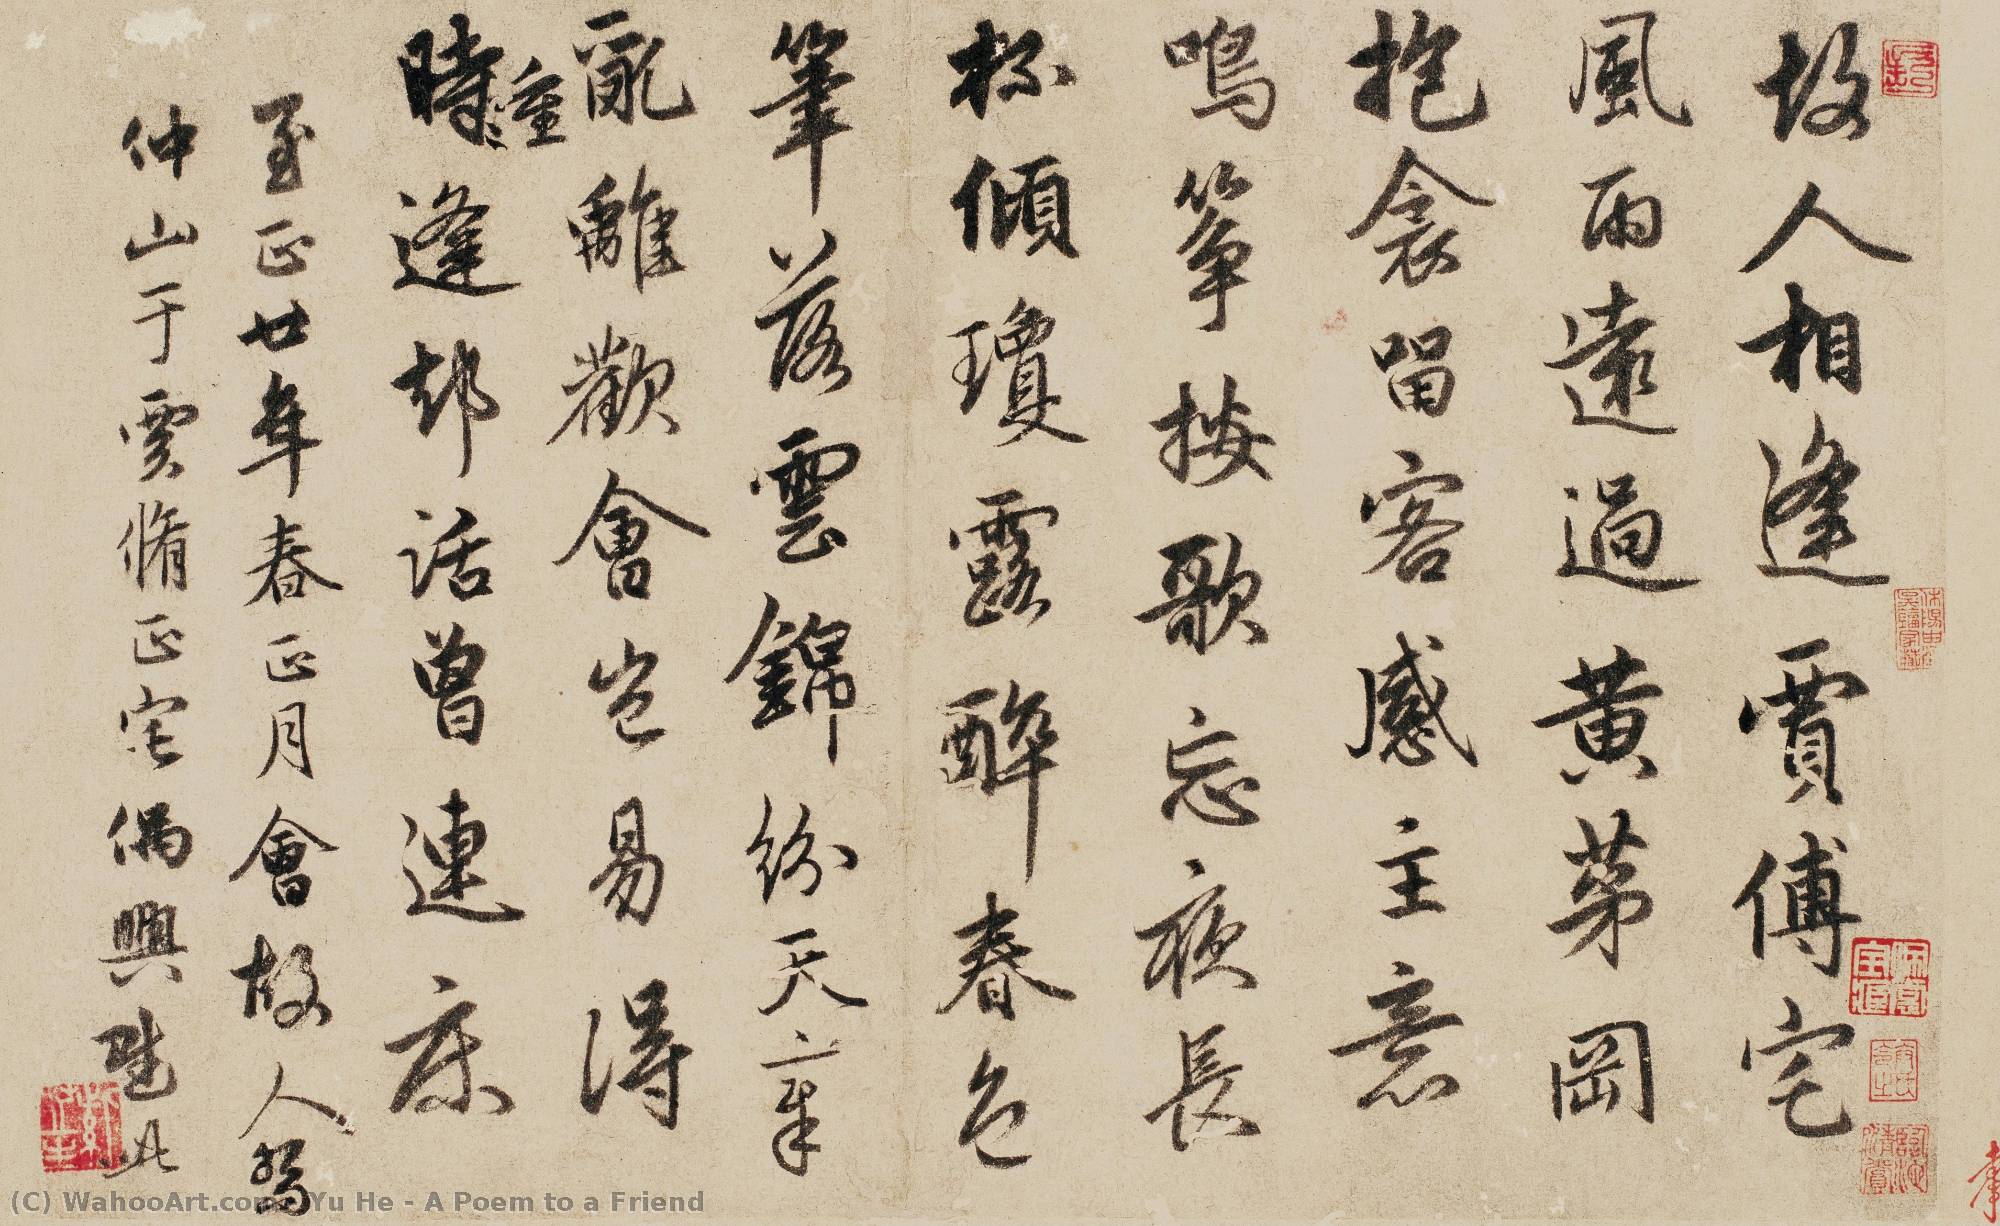 故人相逢賈傅宅
風雨遠過黃茅岡
抱衾留客感主意
鳴箏按歌忘夜長
杯傾瓊露醉春色
筆落雲錦紛天章
亂離歡會豈易得
時重逢却話曾連床
至正廿年春正月會故人
仲山于賈脩正宅偶興賦此
(C) WahooArt.com - Yu He - A Poem to a Friend